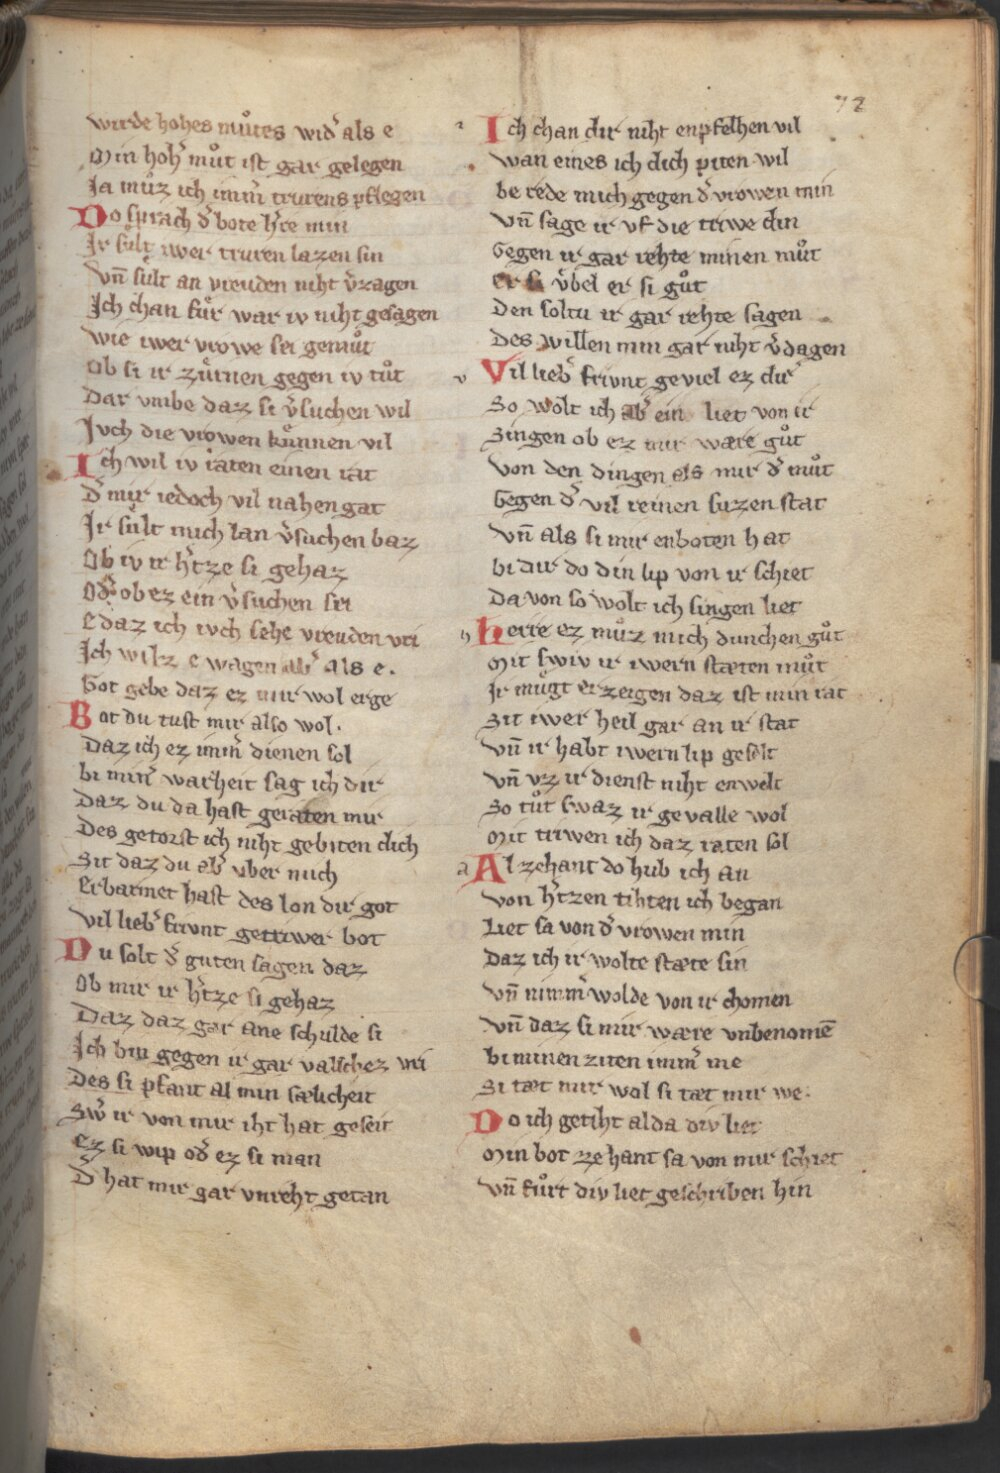 72
wirde hohes muͦtes wid͛ als e
Min hoh͛ muͦt ist gar gelegen
Ja muͦz ich imm͛ trurens pflegen
Do sprach d͛ bote h͛re min
Ir suͤlt iwer truren lazen sin
Vn̄ suͤlt an vreuden niht v͛zagen
Ich chan fuͤr war iv niht gesagen
wie iwer vrowe sei gemuͦt
Ob si ir zuͤrnen gegen iv tuͦt
Dar vmbe daz si v͛suchen wil
Ivch die vrowen kuͤnnen vil
Ich wil iv raten einen rat
D͛ mir iedoch vil nahen gat
Ir suͤlt mich lan v͛suchen baz
Ob iv ir h͛tze si gehaz
Od͛ ob ez ein v͛suchen sei
E daz ich ivch sehe vreuden vri
Ich wilz e wagen ab͛ als e.
Got gebe daz ez mir wol erge
Bot du tust mir also wol.
Daz ich ez imm͛ dienen sol
bi min͛ warheit sag ich dir
Daz du da hast geraten mir
Des getorst ich niht gebiten dich
Sit daz du ab͛ vber mich
Erbarmet hast des lon dir got
Vil lieb͛ frivnt getriwer bot
Du solt d͛ guten sagen daz
Ob mir ir h͛tze si gehaz
Daz daz gar ane schulde si
Ich bin gegen ir gar valsches vri
Des si pfant al min sælicheit
Sw͛ ir von mir iht hat geseit
ez si wip od͛ ez si man
D͛ hat mir gar vnreht getan
i Ich chan dir niht enpfelhen vil
wan eines ich dich piten wil
be rede mich gegen d͛ vrowen min
Vn̄ sage ir vf die triwe din
Gegen ir gar rehte minen muͦt
er si v͛bel er si guͦt
Den soltu ir gar rehte sagen
Des willen min gar niht v͛dagen
v Vil lieb͛ frivnt geviel ez dir
So wolt ich ab͛ ein liet von ir
Singen ob ez mir wære guͦt
Von den dingen als mir d͛ muͦt
Gegen d͛ vil reinen suzen stat
Vn̄ als si mir enboten hat
bi dir do din lip von ir schiet
Da von so wolt ich singen liet
h herre ez muͦz mich dunchen guͦt
Mit swiv ir iwern stæten muͦt
Ir muͤgt erzeigen daz ist min rat
Sit iwer heil gar an ir stat
Vn̄ ir habt iwern lip geselt
Vn̄ vz ir dienst niht enwelt
So tuͦt swaz ir gevalle wol
Mit triwen ich daz raten sol
a Al zehant do hub ich an
Von h͛tzen tihten ich began
Liet sa von d͛ vrowen min
Daz ich ir wolte stæte sin
Vn̄ nimm͛ wolde von ir chomen
Vn̄ daz si mir wære vnbenomē
bi minen ziten imm͛ me
Si tæt mir wol si tæt mir we.
Do ich getiht al da div liet
Min bot ze hant sa von mir schiet
Vn̄ fuͦrt div liet geschriben hin